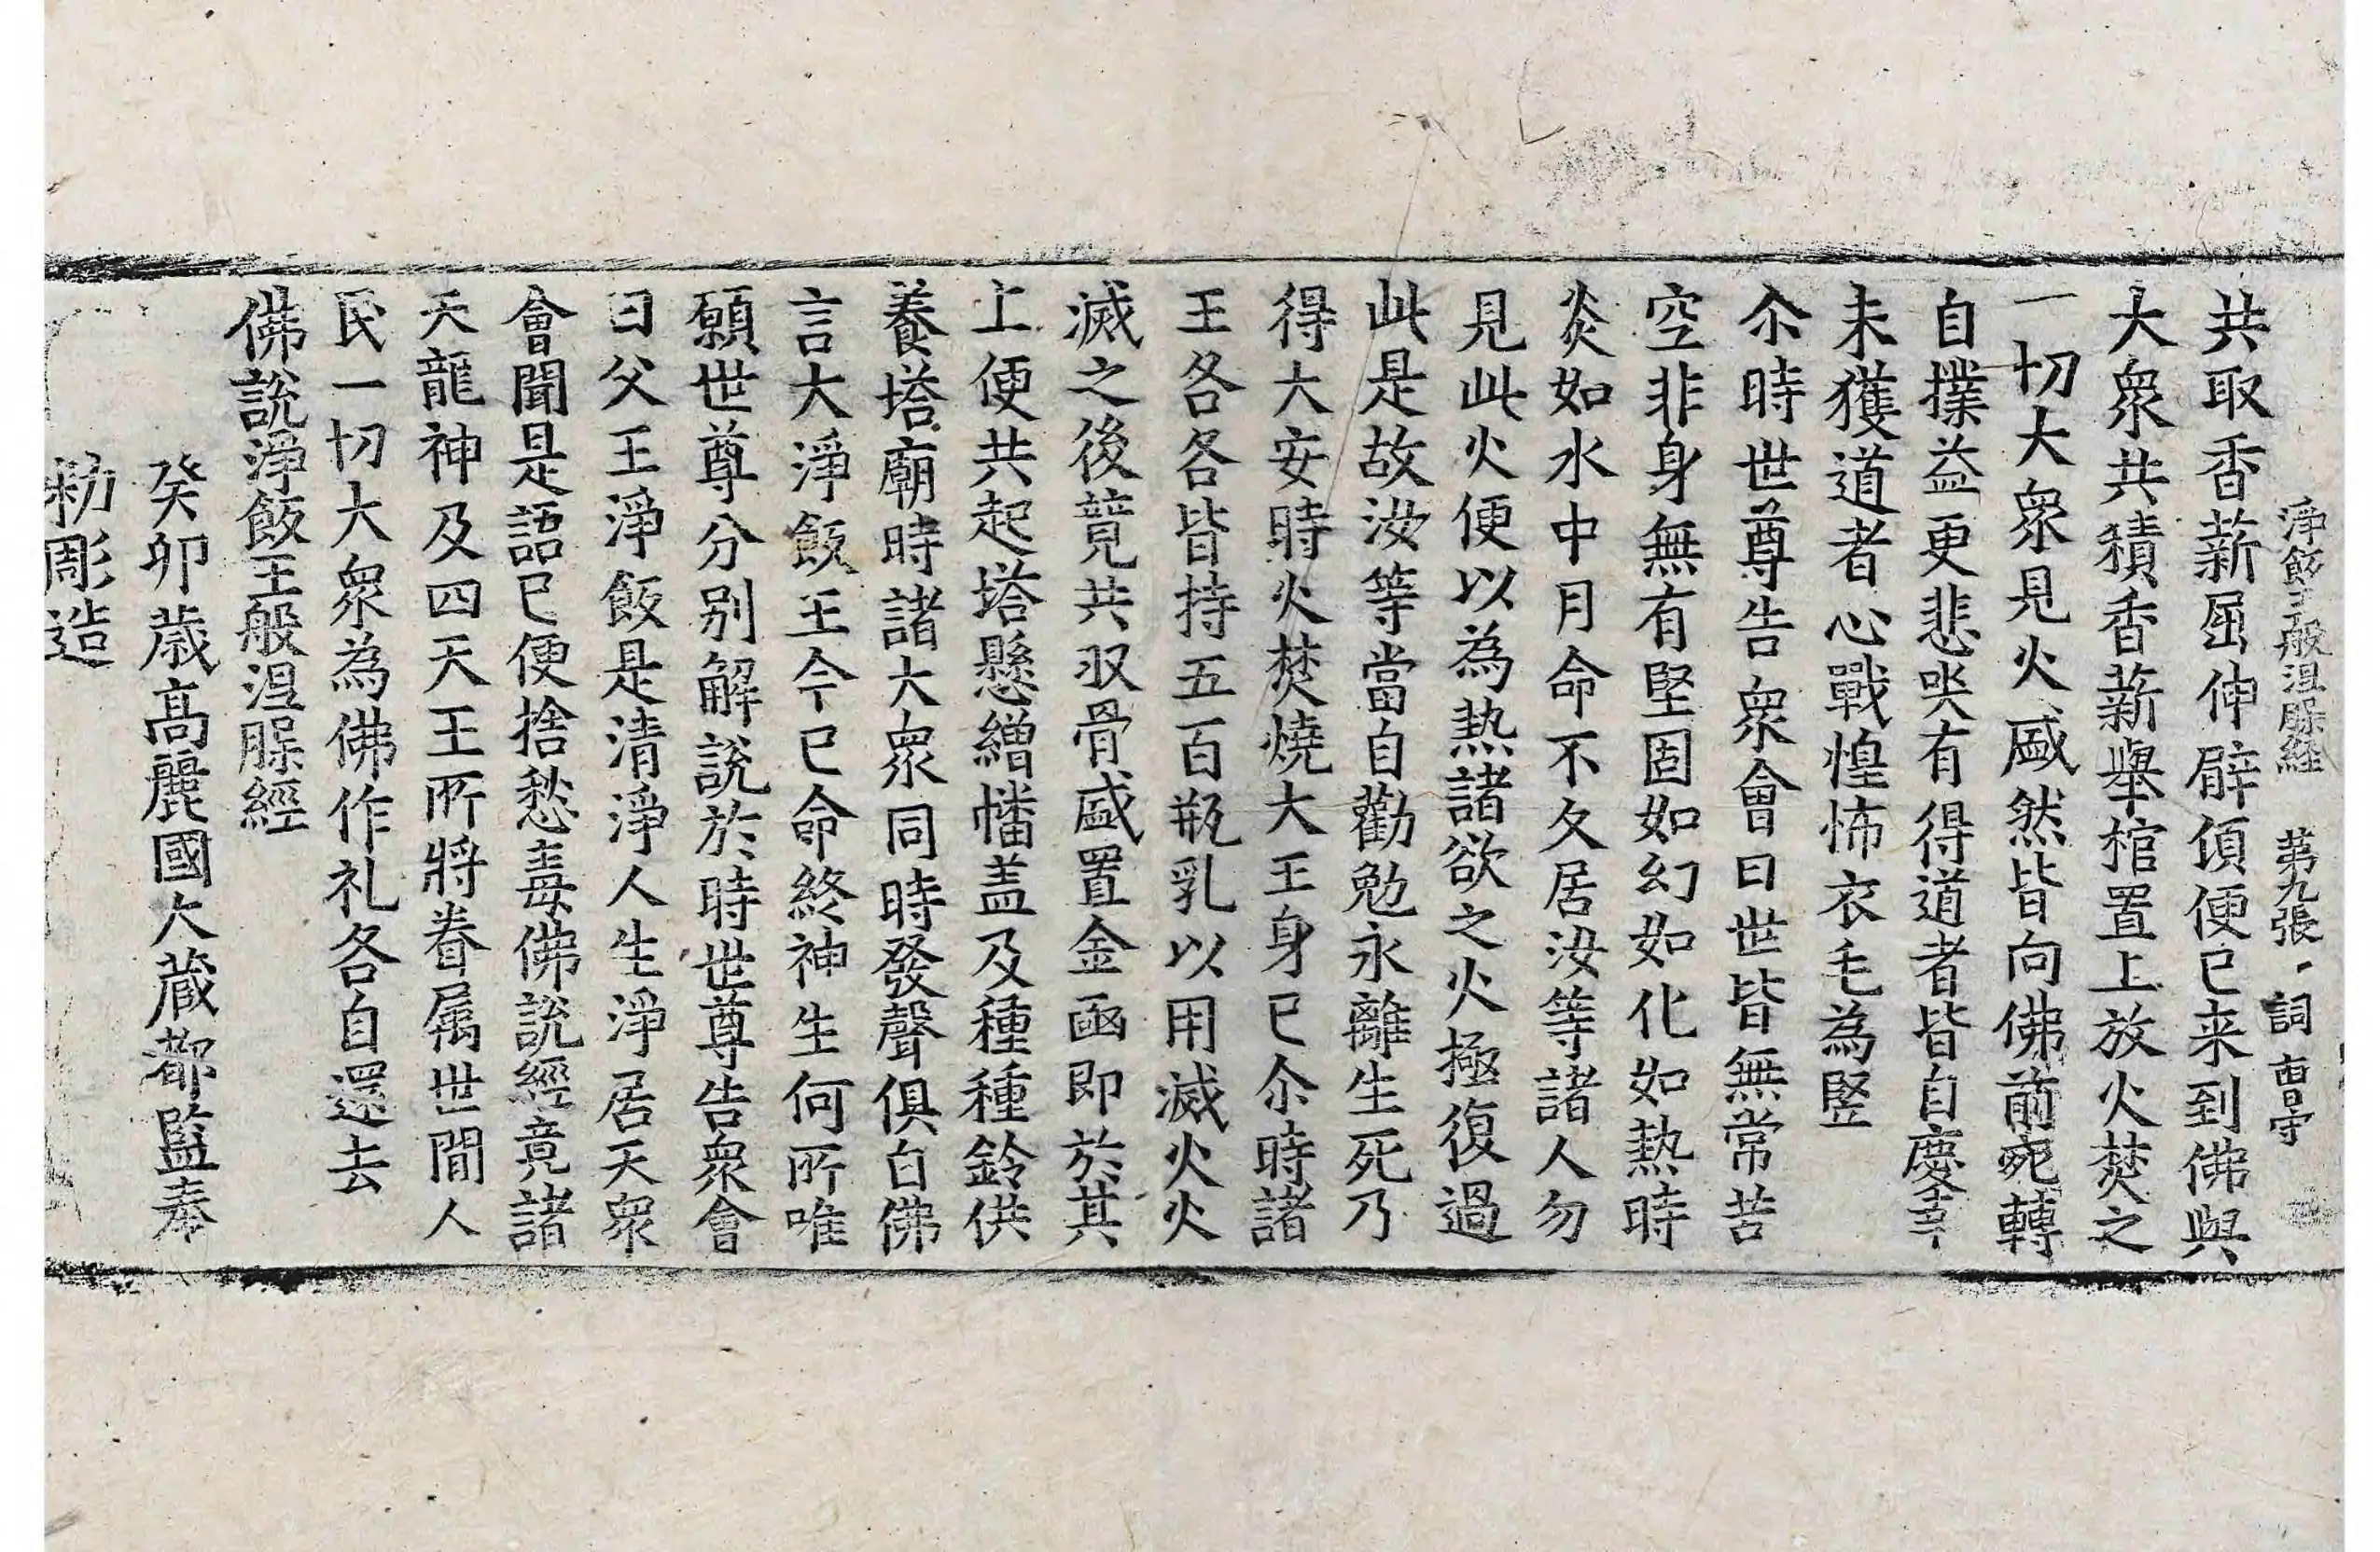 淨飯王般涅槃経 第九張 詞
共取香薪屈伸臂頃便已来到佛與
大衆共積香薪舉棺置上放火焚之
一切大衆見火盛然皆向佛前宛轉
自撲益更悲哭有得道者皆自慶幸
未獲道者心戰惶怖衣毛為竪
尒時世尊告衆會曰世皆無常苦
空非身無有堅固如幻如化如熱時
炎如水中月命不久居汝等諸人勿
見此火便以為熱諸欲之火極復過
此是故汝等當自勸勉永離生死乃
得大安時火焚燒大王身已尒時諸
王各各皆持五百瓶乳以用滅火火
滅之後競共収骨盛置金函即於其
上便共起塔懸繒幡盖及種種鈴供
養塔廟時諸大衆同時發聲俱白佛
言大淨飯王今已命終神生何所唯
願世尊分別解說於時世尊告衆會
曰父王淨飯是清淨人生淨居天衆
會聞是語已便捨愁毒佛說經竟諸
天龍神及四天王所將眷属世間人
民一切大衆為佛作礼各自還去
佛說淨飯王般涅槃經
癸卯歲高麗國大藏都監奉
勑彫造